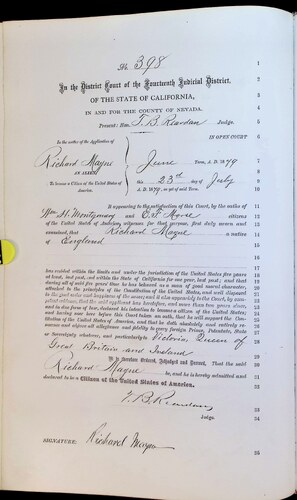 No. 398
In the District Court of the Fourteenth Judicial District.
OF THE STATE OF CALIFORNIA,
IN AND FOR THE COUNTY OF NEVADA.
Present: Hon. T. B. Reardan Judge.
IN OPEN COURT
In the matter of the Application of
Richard Mayne
AN ALIEN
To become a Citizen of the United States of America.
June Term, A. D. 1879
this 23rd day of July
A. D. 1879, as yet of said Term.
It appearing to the satisfaction of this Court, by the oaths of
Wm. H. Montgomery and citizens
of the United States of America, witnesses for that purpose, first duly sworn and
examined, that Richard Mayne a native
of England
has resided within the limits and under the jurisdiction of the United States five years
at least, last past, and within the State of California for one year, last past; and that
during all of said five years' time he has behaved as a man of good moral character,
attached to the principles of the Constitution of the United States, and well disposed
to the good order and happiness of the same; and it also appearing to the Court, by competent
evidence, that the said applicant has heretofore, and more than two years since,
and in due form of law, declared his intention to become a citizen of the United States;
and having now here before this Court taken an oath, that he will support the Constitution
of the United States of America, and that he doth absolutely and entirely renounce
and abjure all allegiance and fidelity to every foreign Prince, Potentate, State
or Sovereignty whatever, and particularly to Victoria, Queen of
Great Britain and Ireland
It is therefore Ordered, Adjudged and Decreed, That the said
Richard Mayne be, and he is hereby admitted and
declared to be a Citizen of the United States of America.
T. B. Reardan,
Judge.
SIGNATURE: Richard Mayne
1
2
3
4
5
6
7
8
9
10
11
12
13
14
15
16
17
18
19
20
21
22
23
24
25
26
27
28
29
30
31
32
33
34
35
36